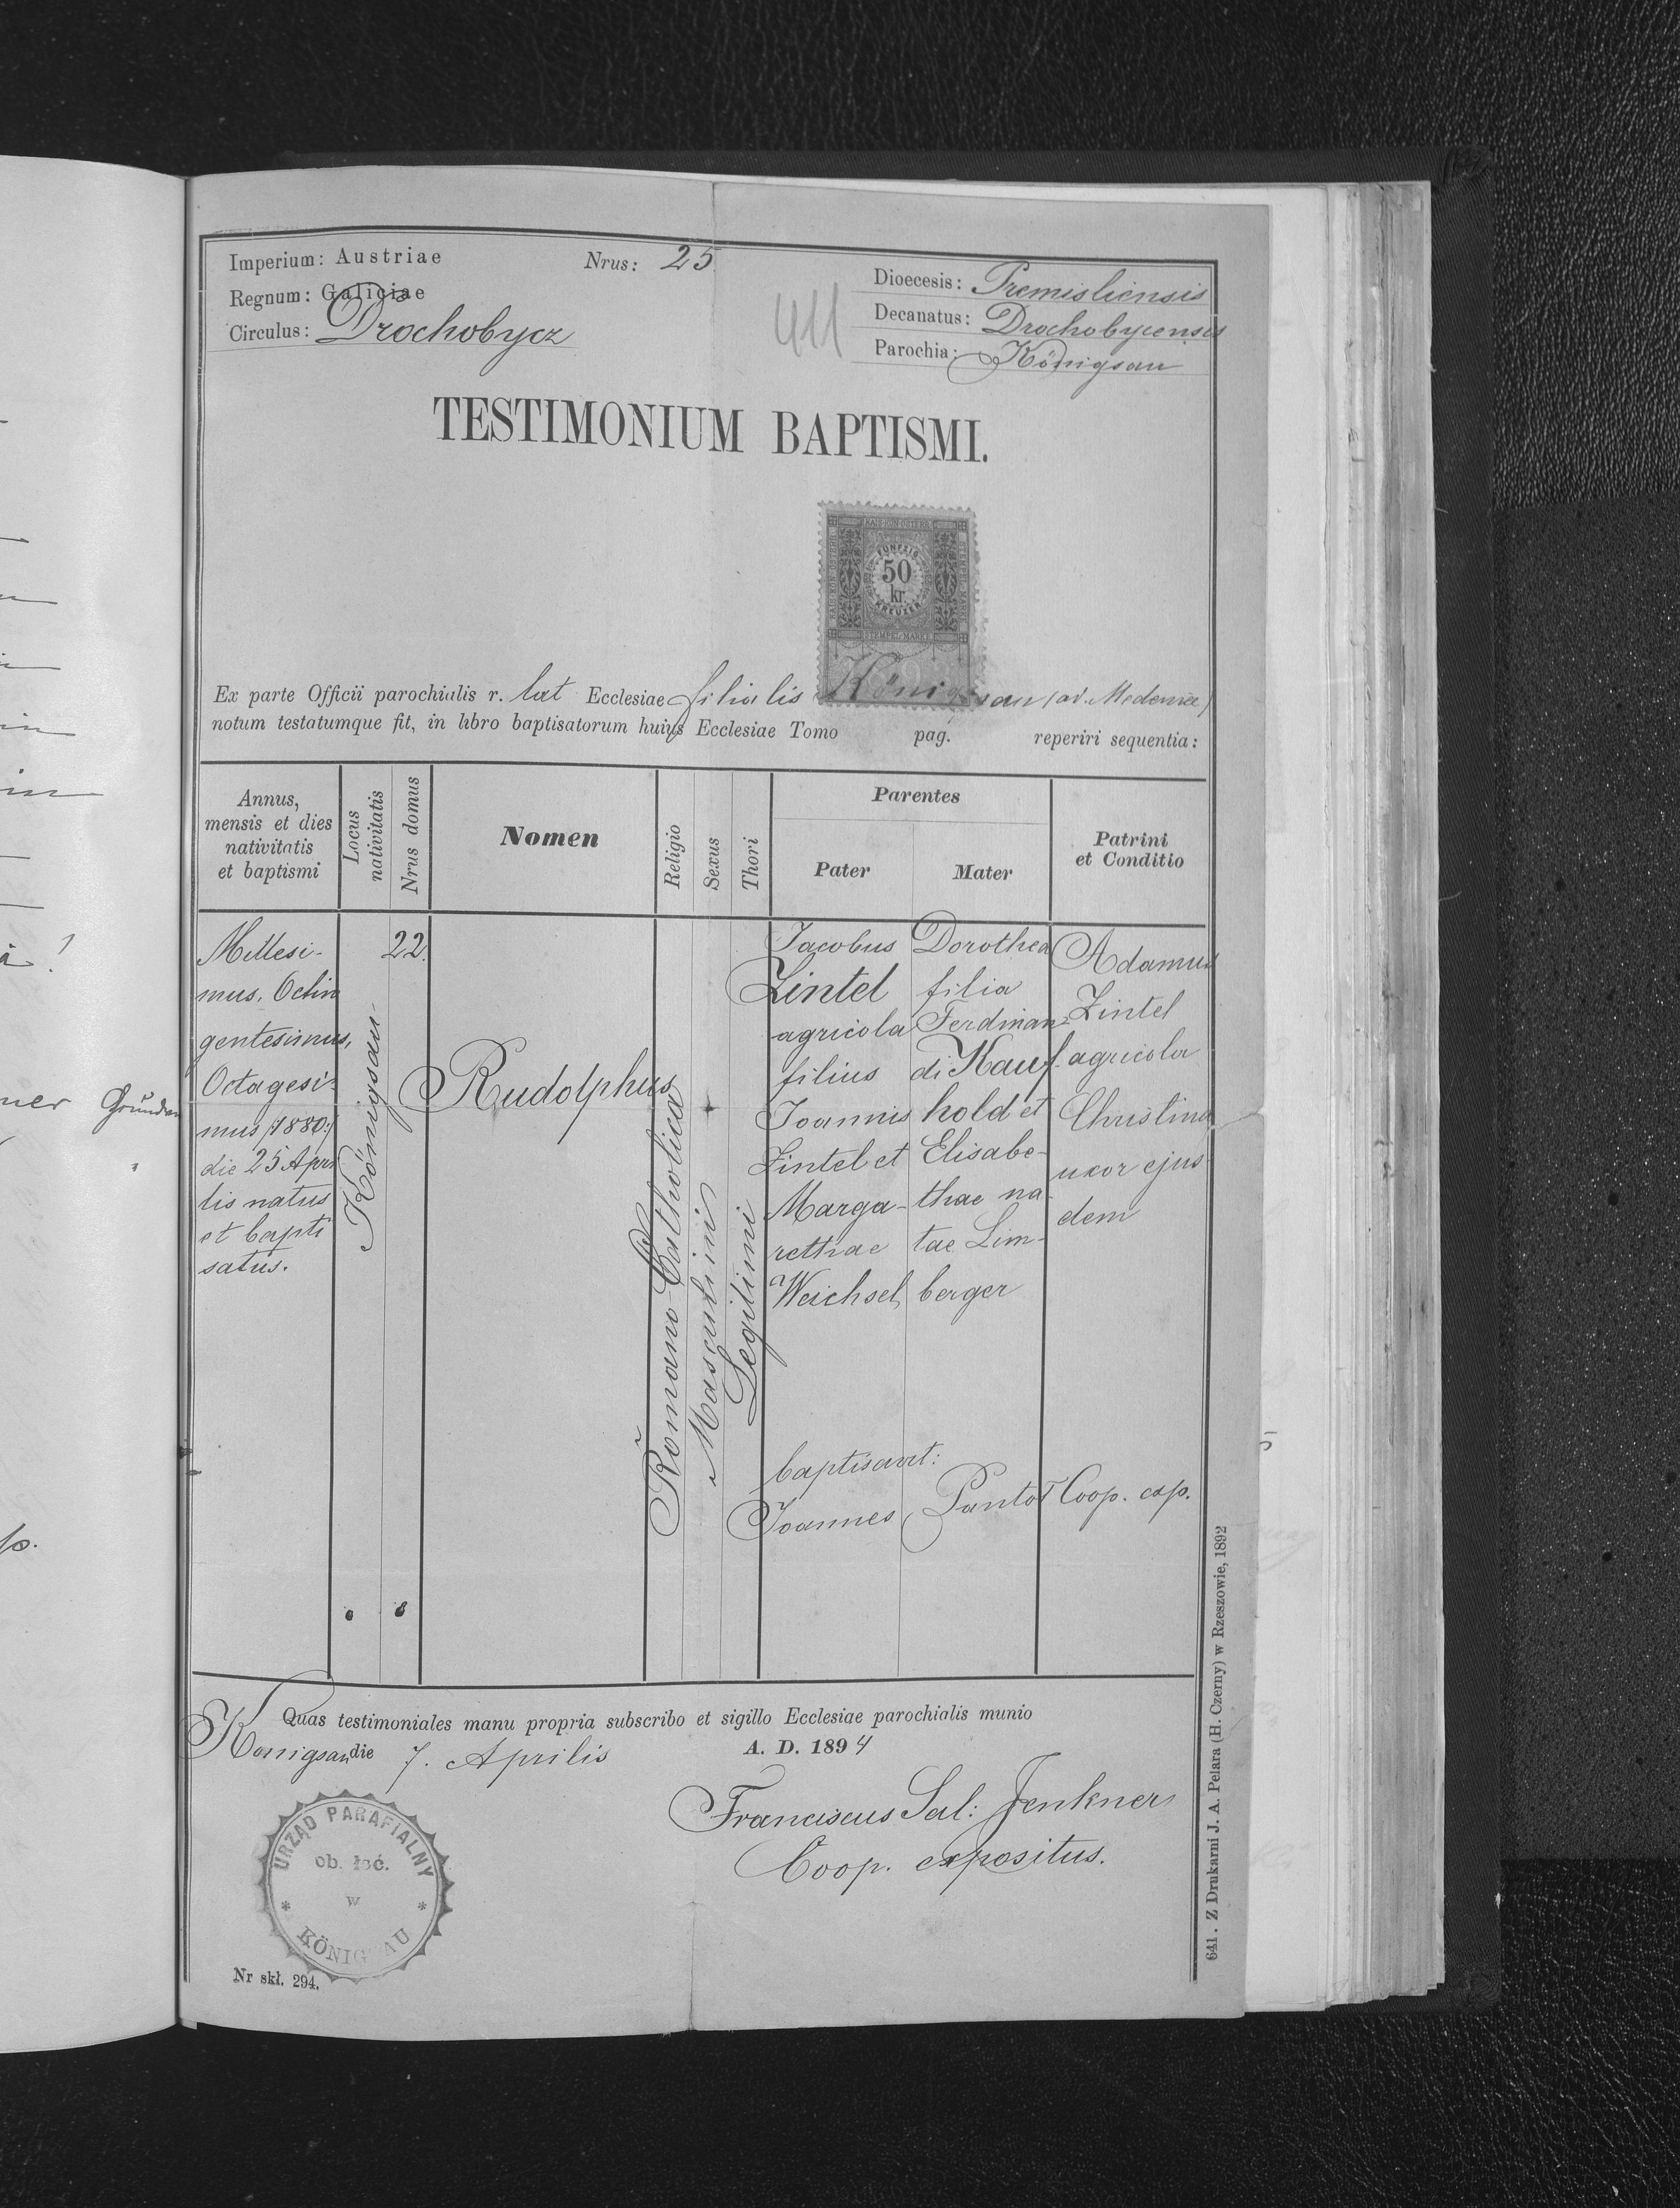 Imperium: Austriae
Nrus: 25
Regnum: Galiciae
Circulus: Drochobycz
411
Dioecesis: Premisliensis
Decanatus: Drochobycensis
Parochia: Königsau
TESTIMONIUM BAPTISMI.
KAIS. KÖN. OESTERR.
FÜNFZIG
50
kr.
KREUZER
STEMPEL-MARKE
Ex parte Officii parochialis r. lat Ecclesiae filialis Königsau (ad. Medenice)
notum testatumque fit, in libro baptisatorum huius Ecclesiae Tomo pag. reperiri sequentia:
Annus,
mensis et dies
nativitatis
et baptismi
Locus
nativitatis
Nrus domus
Nomen
Religio
Sexus
Thori
Parentes
Pater
Mater
Patrini
et Conditio
Millesi-
mus, Octin
gentesimus,
Octagesi-
mus /1880:/
die 25 Apri
lis natus
et bapti
satus.
Königsau
22.
Rudolphus
Romano Catholica
Masculini
Legitimi
Jacobus
Zintel
agricola
filius
Joannis
Zintel et
Marga-
rethae
Weichsel
Dorothea
filia
Ferdinan-
di Kauf-
hold et
Elisabe-
thae na-
tae Lim-
berger
Adamus
Zintel
agricola
Christina
uxor ejus-
dem
baptisavit:
Joannes Pantoł Coop. exp.
Quas testimoniales manu propria subscribo et sigillo Ecclesiae parochialis munio
Königsau die 7. Aprilis A. D. 1894
Franciscus Sal: Jenkner
Coop. expositus.
URZĄD PARAFIALNY
ob. łać.
w
KÖNIGSAU
Nr skł. 294.
641. Z Drukarni J. A. Pelara (H. Czerny) w Rzeszowie, 1892
ner Gründen